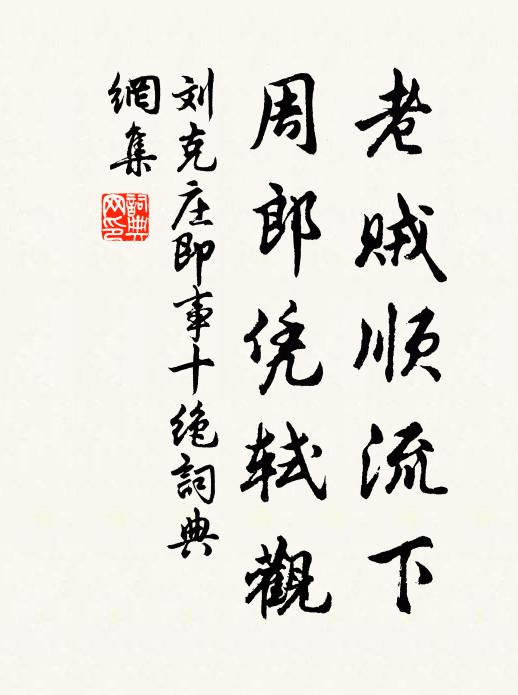 老贼顺流下
周郎凭轼觀
刘克庄即事十绝詞典
網集
詞典网印